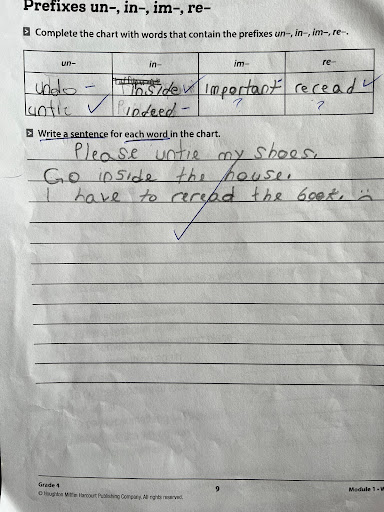 Prefixes un–, in–, im–, re–
Complete the chart with words that contain the prefixes un–, in–, im–, re–.
un– in– im– re–
undo – inside ✓ important – reread ✓
untie ✓ indeed – ? ?
Write a sentence for each word in the chart.
Please untie my shoes.
Go inside the house.
I have to reread the book. ☹
Grade 4
© Houghton Mifflin Harcourt Publishing Company. All rights reserved.
9
Module 1 •